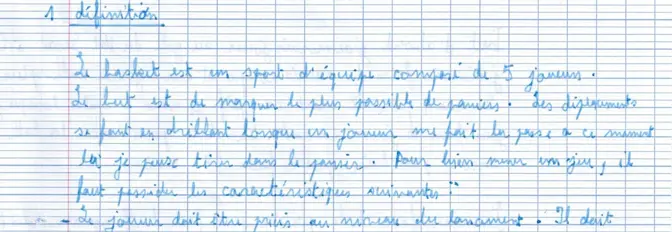 1 définition
Le basket est un sport d'équipe composé de 5 joueurs.
Le but est de marquer le plus possible de paniers. Les déplacements
se font en dribblant lorsque un joueur me fait la passe a ce moment
là je peux tirer dans le panier. Pour bien mener un jeu, il
faut posséder les caractéristiques suivantes :
- Le joueur doit être précis au niveau du lancement. Il doit